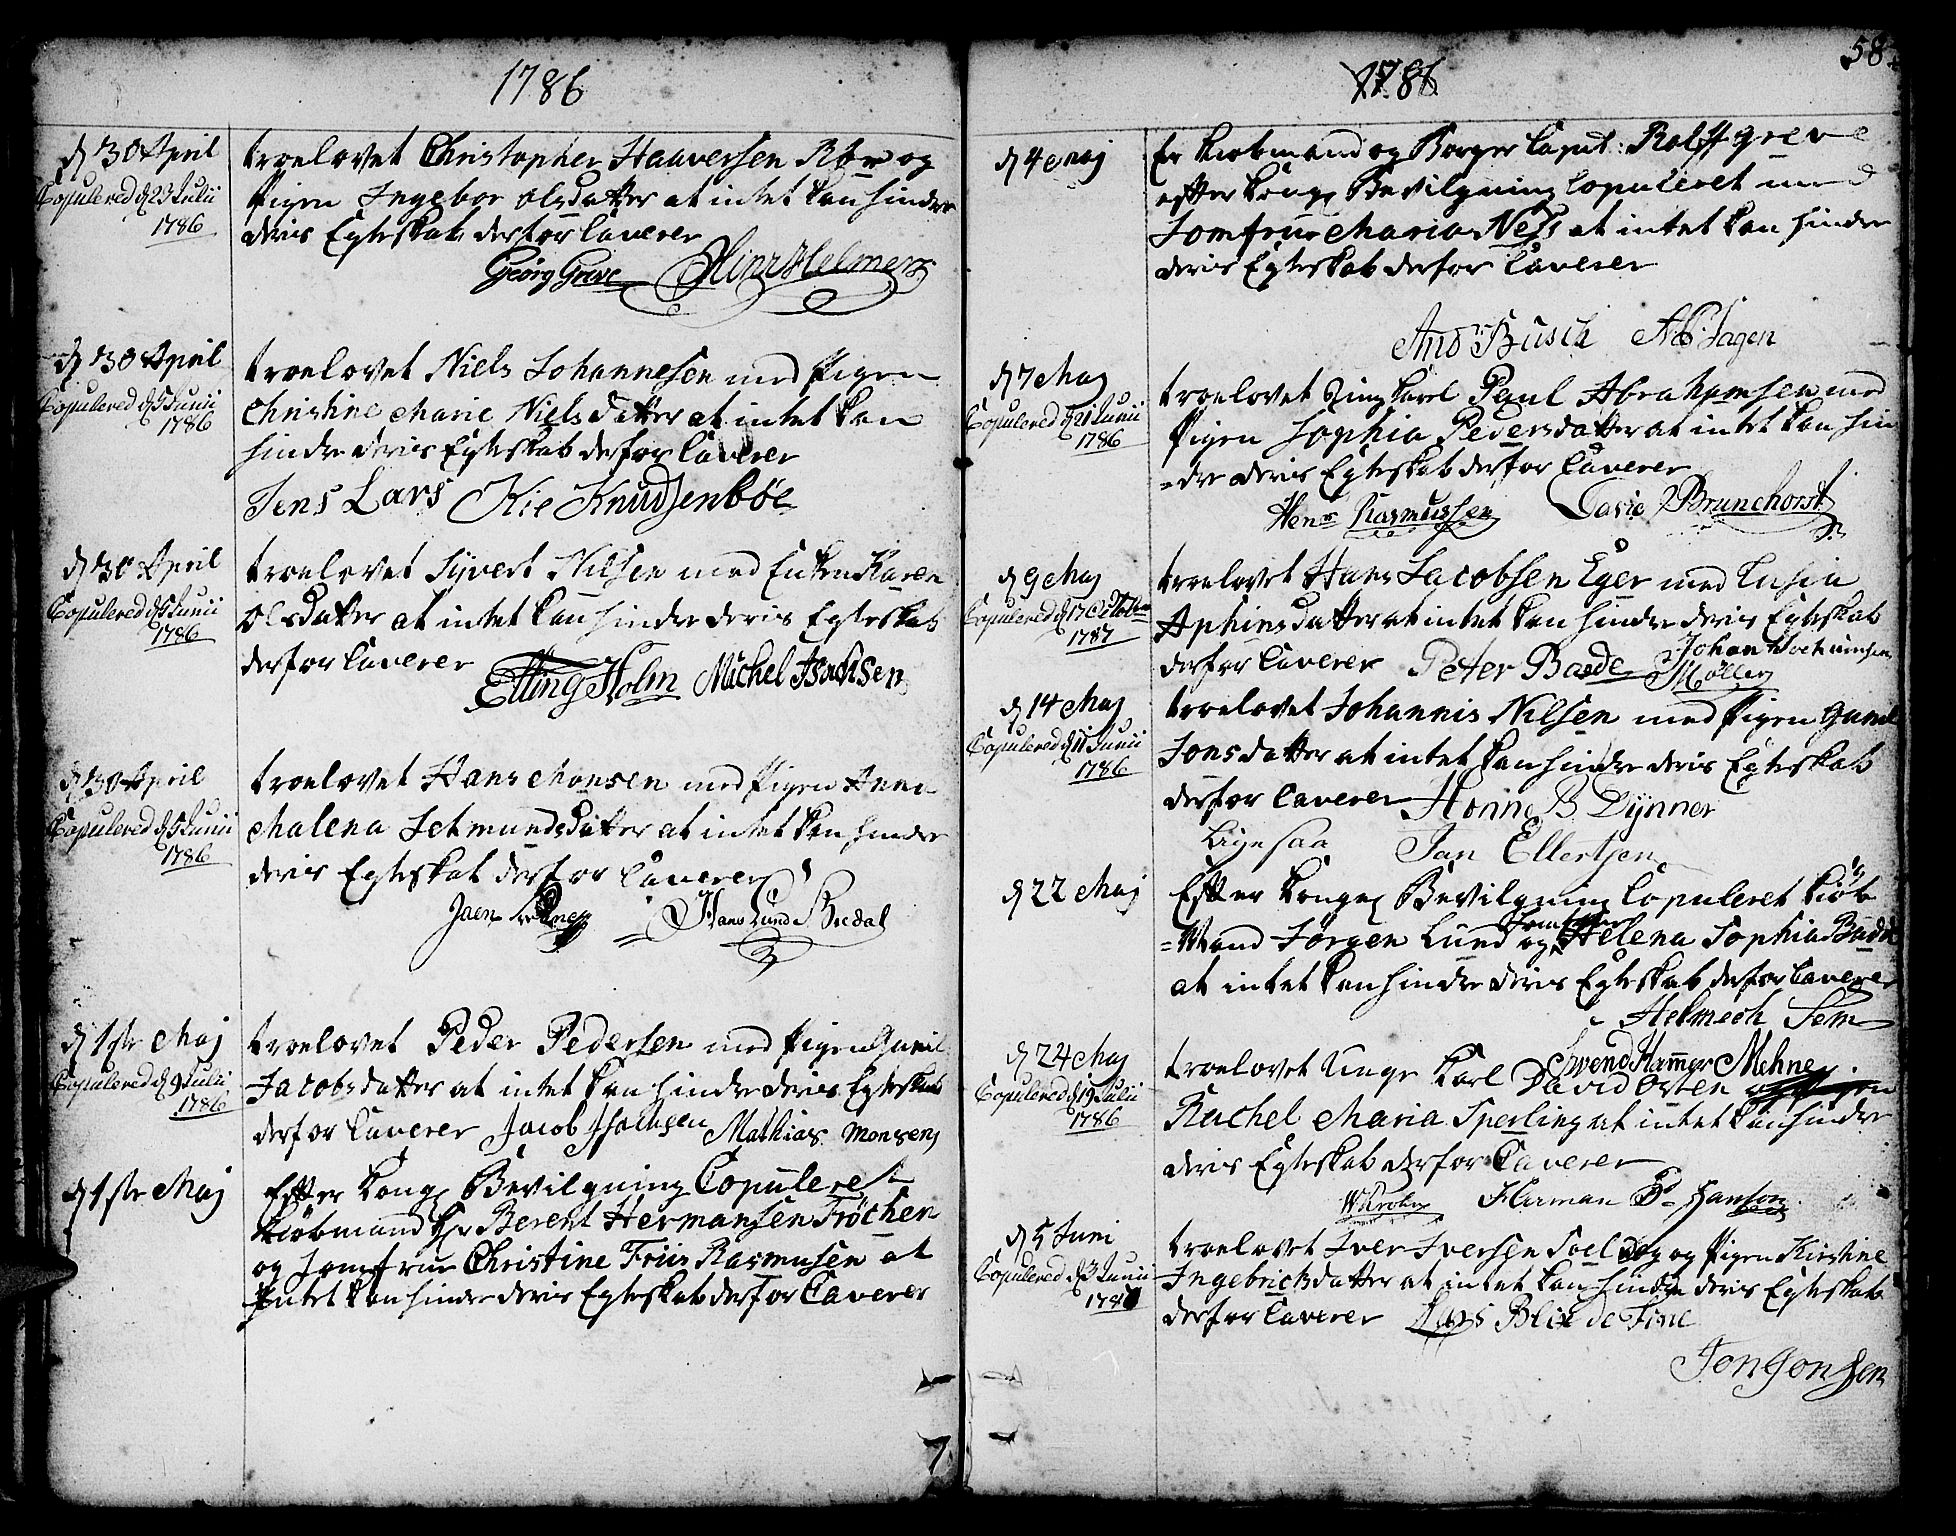 1786
d 30 April
Copulered d 23 Julii
1786
troelovet Christopher Haaversen Røe og
Pigen Ingebor Olsdatter at intet kan hindre
deris Egteskab derfor Caverer
Georg Greve Hinr Helmers
d 30 April
Copulered d 5 Junii
1786
troelovet Niels Johannesen med Pigen
Christine Marie Nielsdatter at intet kan
hindre deris Egteskab derfor Caverer
Jens Lars Kie Knudsenbøe
d 30 April
Copulered d 5 Junii
1786
troelovet Syvert Nilsen med Enken Karen
Olsdatter at intet kan hindre deris Egteskab
derfor Caverer Elling Holm Michel Isachsen
d 30 April
Copulered d 5 Junii
1786
troelovet Hans Monsen med Pigen Anna
Malena Setmundsdatter at intet kan hindre
deris Egteskab derfor Caverer
Jaen Hans Lund Buedal
d 1ste Maj
Copulered d 9 Julii
1786
troelovet Peder Pedersen med Pigen Gunil
Jacobsdatter at intet kan hindre deris Egteskab
derfor Caverer Jacob Isachsen Mathias Monsen
d 1ste Maj
Efter Kong Bevilgning Copuleret
Kiøbmand Hr Berent Hermansen Frøchen
og Jomfrue Christine Friis Rasmusen at
Intet kan hindre deris Egteskab derfor Caverer
7
58
1786
d 4 Maj
Er Kiobmand og Borger Capt: Rolff Greve
efter Kong Bevilgning Copuleret med
Jomfrue Maria Ness at intet kan hindre
deris Egteskab derfor Caverer
And Busch AB Jagen
d 7 Maj
Copulered d 21 Junii
1786
troelovet Ung Karl Paul Abrahamsen med
Pigen Sophia Pedersdatter at intet kan hin
=dre deris Egteskab derfor Caverer
Hens Rasmussen David Brunchorst
d 9 Maj
Copulered d 17 October
1787
troelovet Hans Jacobsen Eger med Lusia
Aphinsdatter at intet kan hindre deris Egteskab
derfor Caverer Peter Baade Johan Jochumsen
Møller
d 14 Maj
Copulered d 11 Junii
1786
troelovet Johannis Nilsen med Pigen Gunil
Jonsdatter at intet kan hindre deris Egteskab
derfor Caverer Honne B. Dynner
Ligesaa Jan Ellertsen
d 22 Maj
Efter Kong Bevilgning Copuleret Kiøb
=Mand Jørgen Lund og Jomfrue Helena Sophia Budde
at intet kan hindre deris Egteskab derfor Caverer
Helmech Sem
d 24 Maj
Copulered d 19 Julii
1786
Svend Hammer Mehne
troelovet Unge Karl David Osten og Pigen
Rachel Maria Sperling at intet kan hindre
deris Egteskab derfor Caverer
Harman P Hanson
d 5 Juni
Copulered d 3 Junii
troelovet Iver Iversen og Pigen Kirstine
Ingebricksdatter at intet kan hindre deris Egteskab
derfor Caverer Lars Blix de Fine
Jon Jonsen